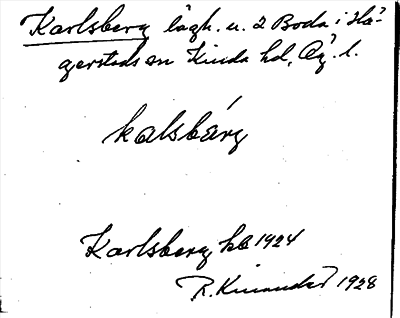 Karlsberg lägh. u. 2 Boda i Hä-
gerstads sn Kinda hd, Ög. l.
kalsbárg
Karlsberg hb 1924
R. Kinander 1928